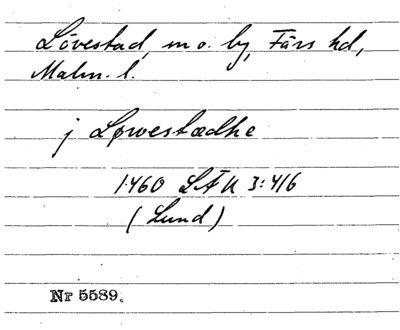 Lövestad, m o. by, Färs hd,
Malm. l.
j Løwestædhe
1460 LÄU 3:416
(Lund)
Nr 5589.